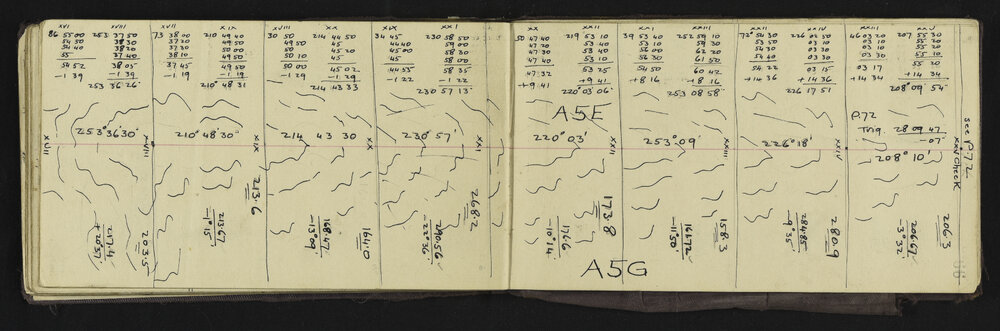 XVI XVIII
86 55 00 253 37 50
54 50 38 30
54 40 38 20
55 37 40
54 52 38 05
-1 39 -1 39
253 36 26
XVII XIX
73 38 00 210 49 40
37 20 49 50
37 30 50 00
38 10 49 50
37 45 49 50
-1 19 -1 19
210° 48 31
XVIII XX
30 50 214 44 50
49 50 45
50 00 45 20
50 10 45
50 00 45 02
-1 29 -1 29
214 43 33
XIX XXI
34 45 230 58 50
44 40 59 00
45 00 58 30
45 58 00
44 55 58 35
-1 22 -1 22
230 57 13
XX XXII
50 47 40 219 53 10
47 20 53 40
47 30 53 40
47 40 53 10
47 32 53 25
+9 41 +9 41
220° 03 06
XXI XXIII
39 53 40 252 59 10
53 10 59 30
55 00 62 20
56 30 61 50
54 50 60 42
+8 16 +8 16
253 08 58
72° 54 30 226 02 50
53 50 03 10
54 30 03 10
54 40 03 30
54 22 03 15
+14 36 +14 36
226 17 51
46 03 20 207 55 30
03 10 55 20
03 10 55 20
03 30 55 10
03 17 55 20
+14 34 +14 34
208° 09' 54"
A5E
P.72
Trig 28 09 47
-07
208° 10'
See P.72
XXV Check
XVII
253° 36 30"
XVIII
210° 48 30"
XIX
214 43 30
XX
230° 57'
XXI
220° 03'
XXII
253° 09'
XXIII
226° 18'
XXIV
203·5
217·4
+20° 57'
213·6
213·67
-1° 15'
164·0
168·47
-13° 09'
268·2
290·56
-22° 36'
173·8
176·6
-10° 14
158·3
161·72
-11° 50'
280·9
284·85
-9° 35'
206·3
206·67
3° 32'
A5G